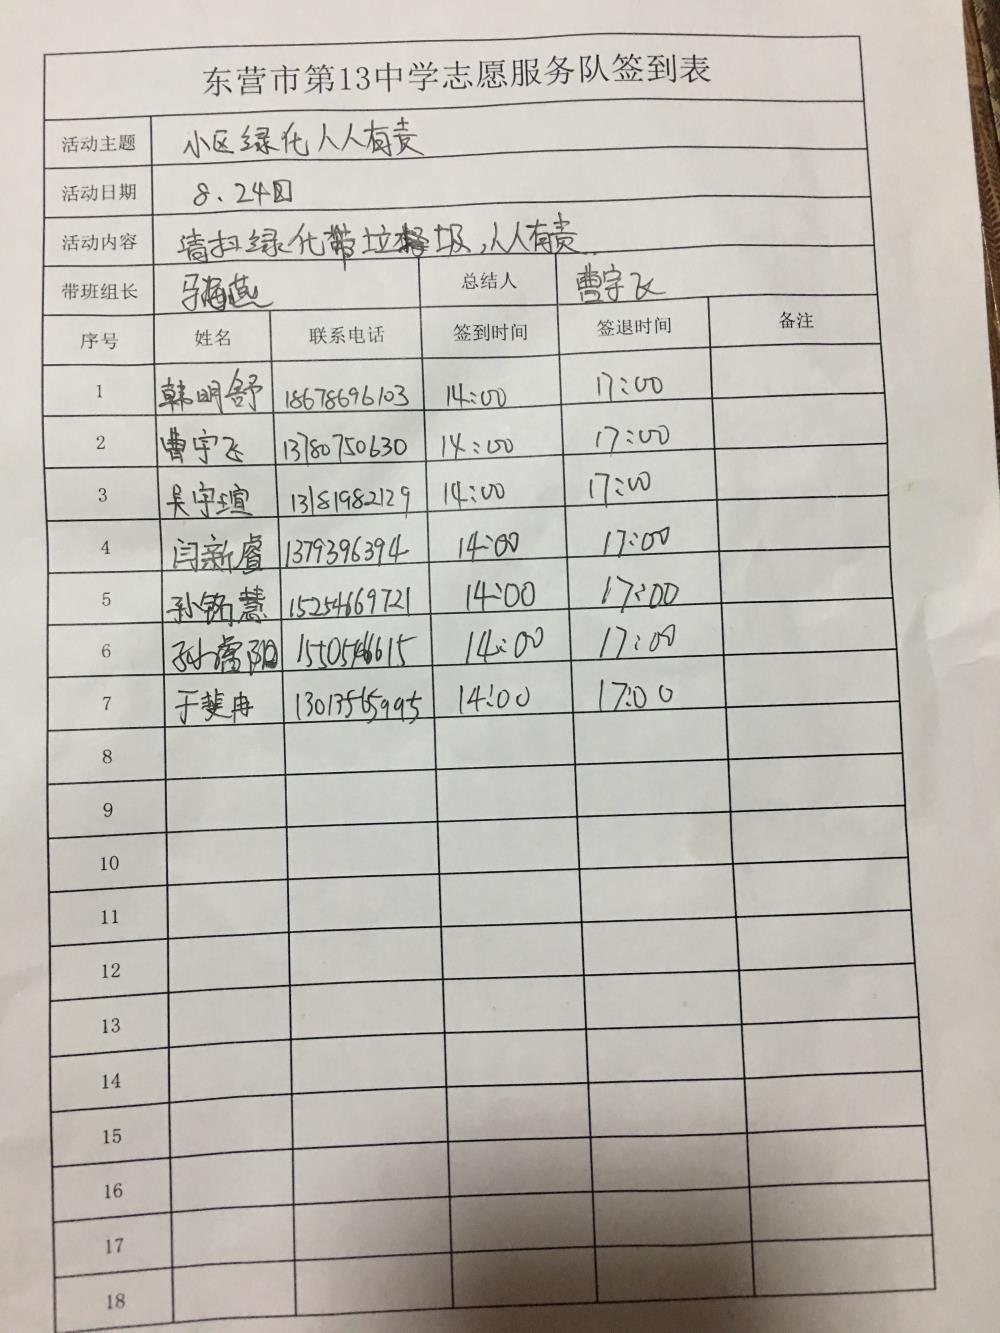 东营市第13中学志愿服务队签到表
活动主题 小区绿化人人有责
活动日期 8.24日
活动内容 清扫绿化带垃圾,人人有责
带班组长 马海燕 总结人 曹宇飞
序号 姓名 联系电话 签到时间 签退时间 备注
1 韩明舒 18678696103 14:00 17:00
2 曹宇飞 13780750630 14:00 17:00
3 吴宇瑄 13181982129 14:00 17:00
4 闫新睿 1379396394 14:00 17:00
5 孙铭慧 15254669721 14:00 17:00
6 14:00 17:00
7 于斐冉 13013565995 14:00 17:00
8
9
10
11
12
13
14
15
16
17
18